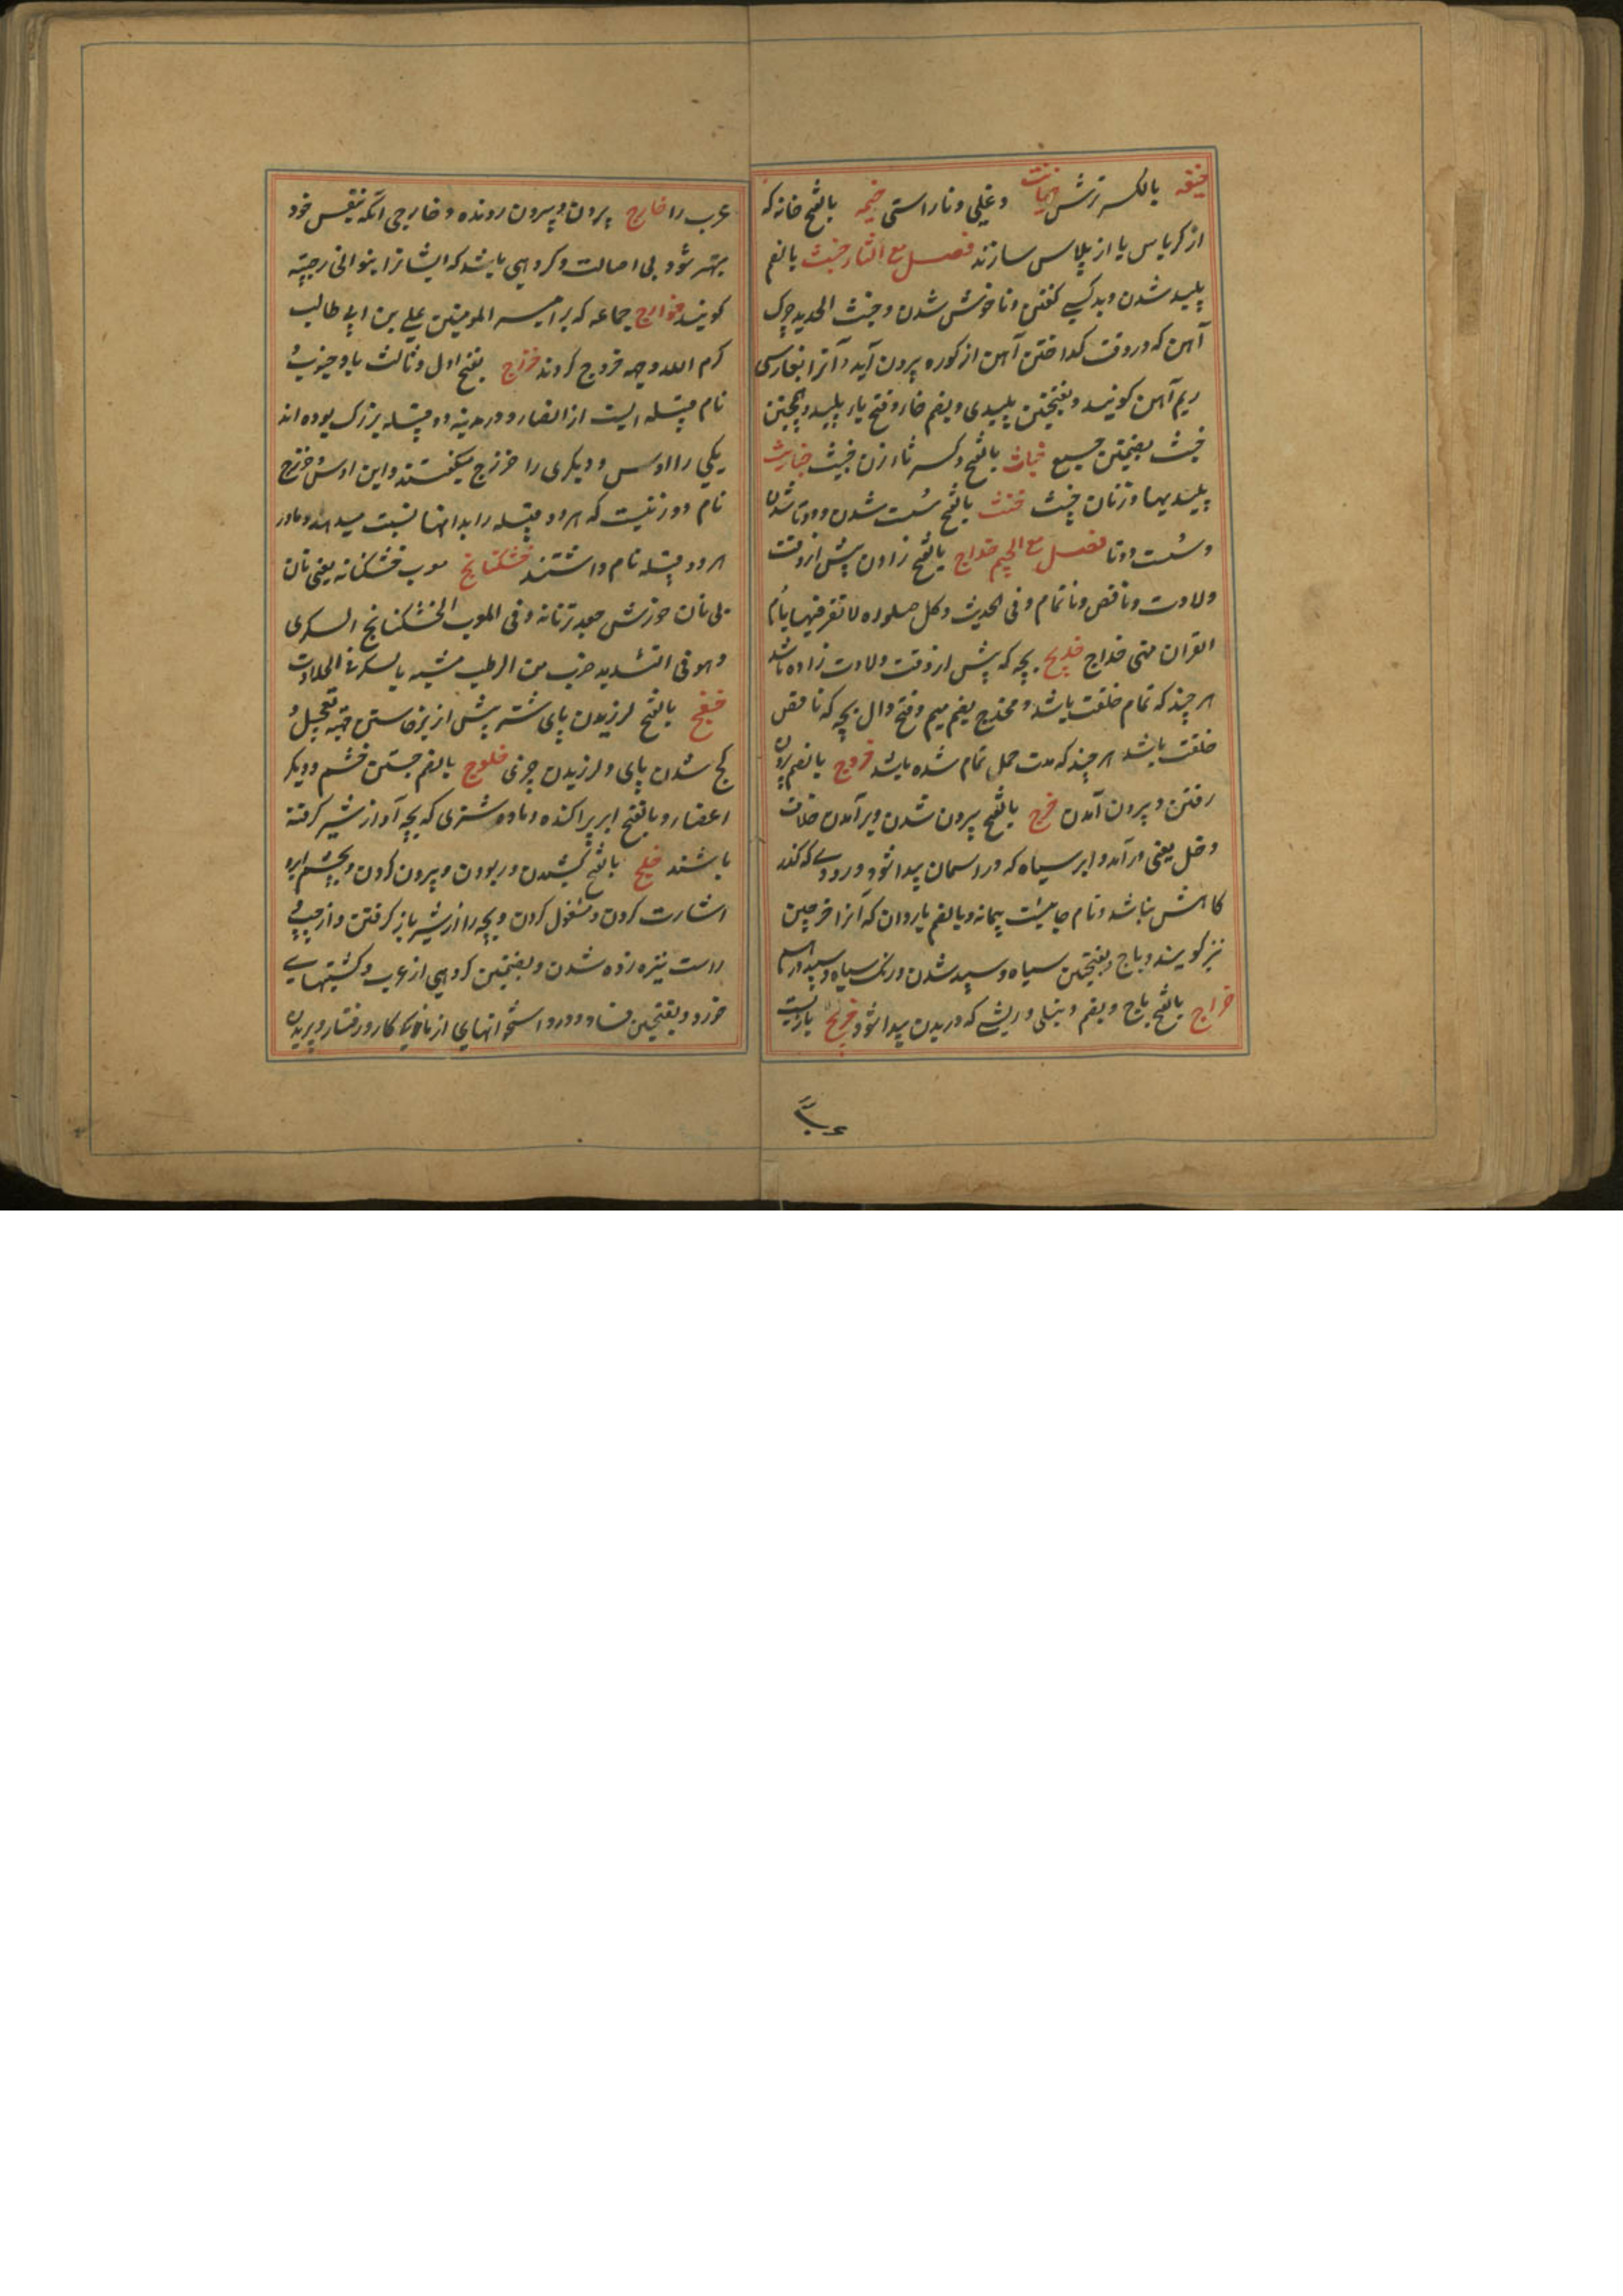 خیفه بالکسر ترش خیانت دغلی و ناراستی خیمه بالفتح خانه که
از کرباس یا از پلاس سازند فصل مع الثاء خبث بالضم
پلید شدن و بد کسی کفتن و ناخوش شدن و خبث الحدید چرک
آهن که در وقت کداختن آهن از کوره بیرون آید و آنرا بفارسی
ریم آهن کویند و بفتحتین پلیدی و بضم خا و فتح با پلید و همچنین
خبث بضمتین جمیع خباث بالفتح و کسر ثا زن خبیث خبایث
پلیدیها و زنان خبیث خنث بالفتح سست شدن و دوتا شدن
و سست دوتا فصل مع الجیم خداج بالفتح زادن پیش از وقت
ولادت و ناقص و ناتمام و فی الحدیث و کل صلوة لا تقرء فیها بام
القران فهی خداج خدیج بچه که پیش از وقت ولادت زاده باشد
هر چند که تمام خلقت باشد و مخدج بضم میم و فتح دال بچه که ناقص
خلقت باشد هر چند که مدت حمل تمام شده باشد خروج بالضم بیرون
رفتن و بیرون آمدن خرج بالفتح بیرون شدن و برآمدن خلاف
دخل یعنی درآمد و ابر سیاه که در آسمان پیدا شود و رودی که کذر
کاهش نباشد و نام جاییست بیمامه و بالضم باردان که آنرا خرجین
نیز کویند و باج و بفتحتین سیاه و سپید شدن و رنک سیاه و سپید
خراج بالفتح باج و بضم دنبلی و ریشی که در بدن پیدا شود خریج بازیست
عرب را خارج بیرون و بیرون رونده و خارجی انکه بنفس خود
مهتر شود بی اصالت و کروهی باشد که ایشانرا بنو الخارجیه
کویند خوارج جماعه که بر امیر المومنین علی بن ابی طالب
کرم الله وجهه خروج کردند خزرج بفتح اول و ثالث باد جنوب و
نام قبیله ایست از انصار و در مدینه دو قبیله بزرک بوده اند
یکی را اوس و دیکری را خزرج میکفتند و این اوس و خزرج
نام دو زنیست که هر دو قبیله را بدانها نسبت میدهند و مادر
هر دو قبیله نام داشتند خشکنانج معرب خشکنانه یعنی نان
بی نان خورش و فی المعرب الخشکنانج السکری
و هو فی الشدید ضرب من الرطب مشبه بالسکر فی الحلاوت
خفج بالفتح لرزیدن پای شتر پیش از برخاستن بجهة تعجیل و
کج شدن پای و لرزیدن چیزی خلوج بالضم جستن چشم و دیکر
اعضا و بالفتح ابر پراکنده و ماده شتری که بچه آن از شیر کرفته
باشند خلج بالفتح کشیدن و ربودن و بیرون کردن و بچشم ابرو
اشارت کردن و مشغول کردن و بچه را از شیر باز کرفتن و از چپ و
راست نیزه زده شدن و بضمتین کروهی از عرب و کشتیهای
خورد و بفتحتین فساد و درد استخوانهای از ماندکی کار و رفتار و پریدن
عرب